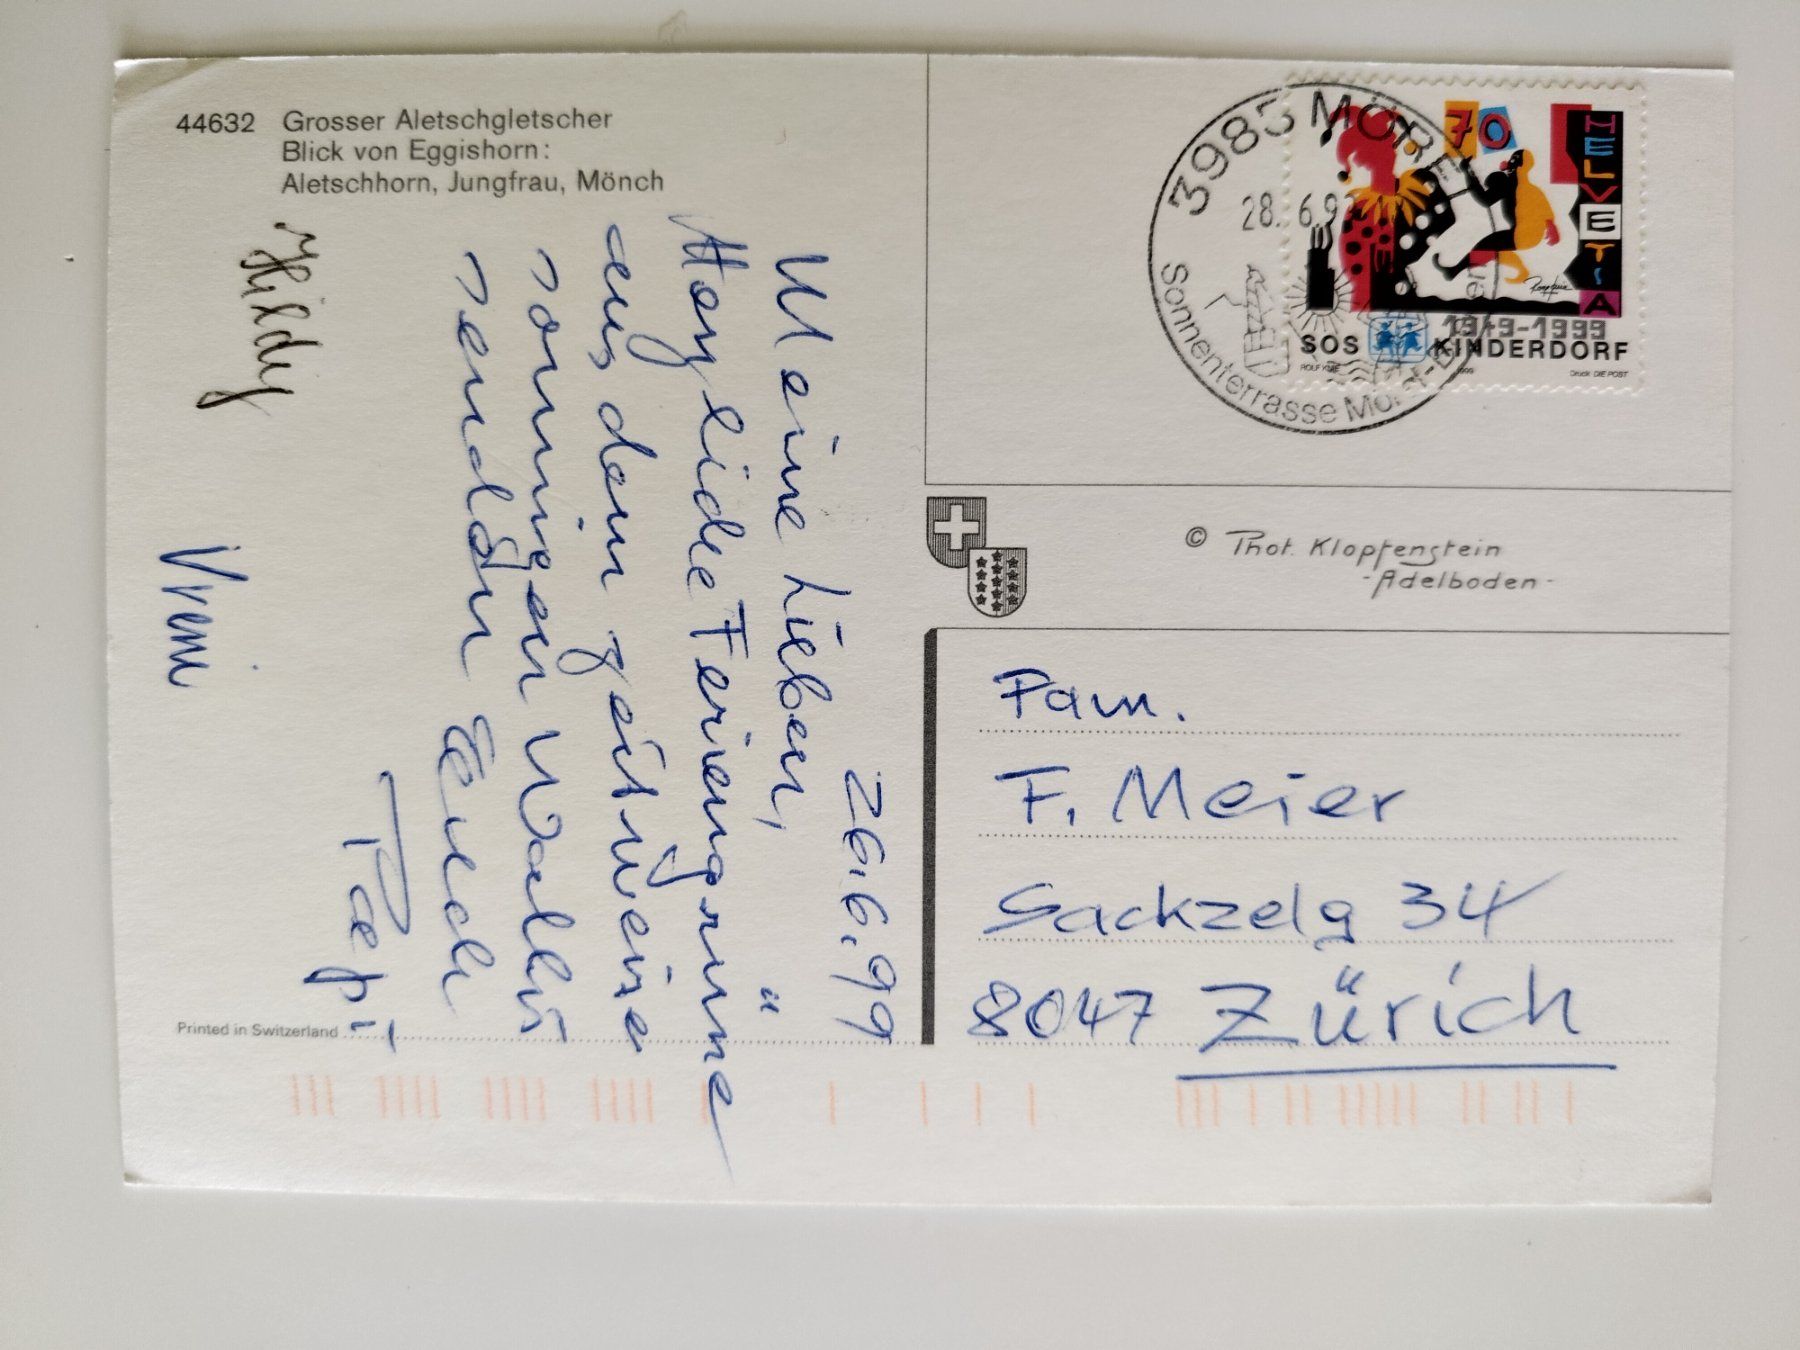 44632 Grosser Aletschgletscher
Blick von Eggishorn:
Aletschhorn, Jungfrau, Mönch
26.6.99
Meine Lieben,
Herzliche Feriengrüsse
aus dem zeitweise
sonnigen Wallis
senden Euch
Päpi
Hildy
Vreni
Printed in Switzerland
3983 MÖREL
28.6.99
Sonnenterrasse
70
HELVETIA
1949-1999
SOS KINDERDORF
ROLF KNIE 1999 Druck: DIE POST
© Phot. Klopfenstein
- Adelboden -
Fam.
F. Meier
Sackzelg 34
8047 Zürich